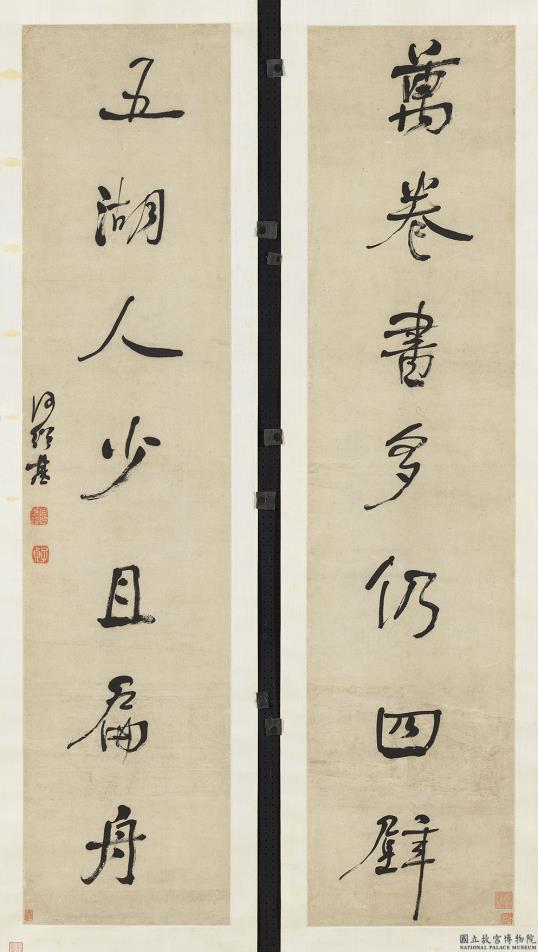 萬卷書多仍四壁
五湖人少且扁舟
何紹基
國立故宮博物院
NATIONAL PALACE MUSEUM